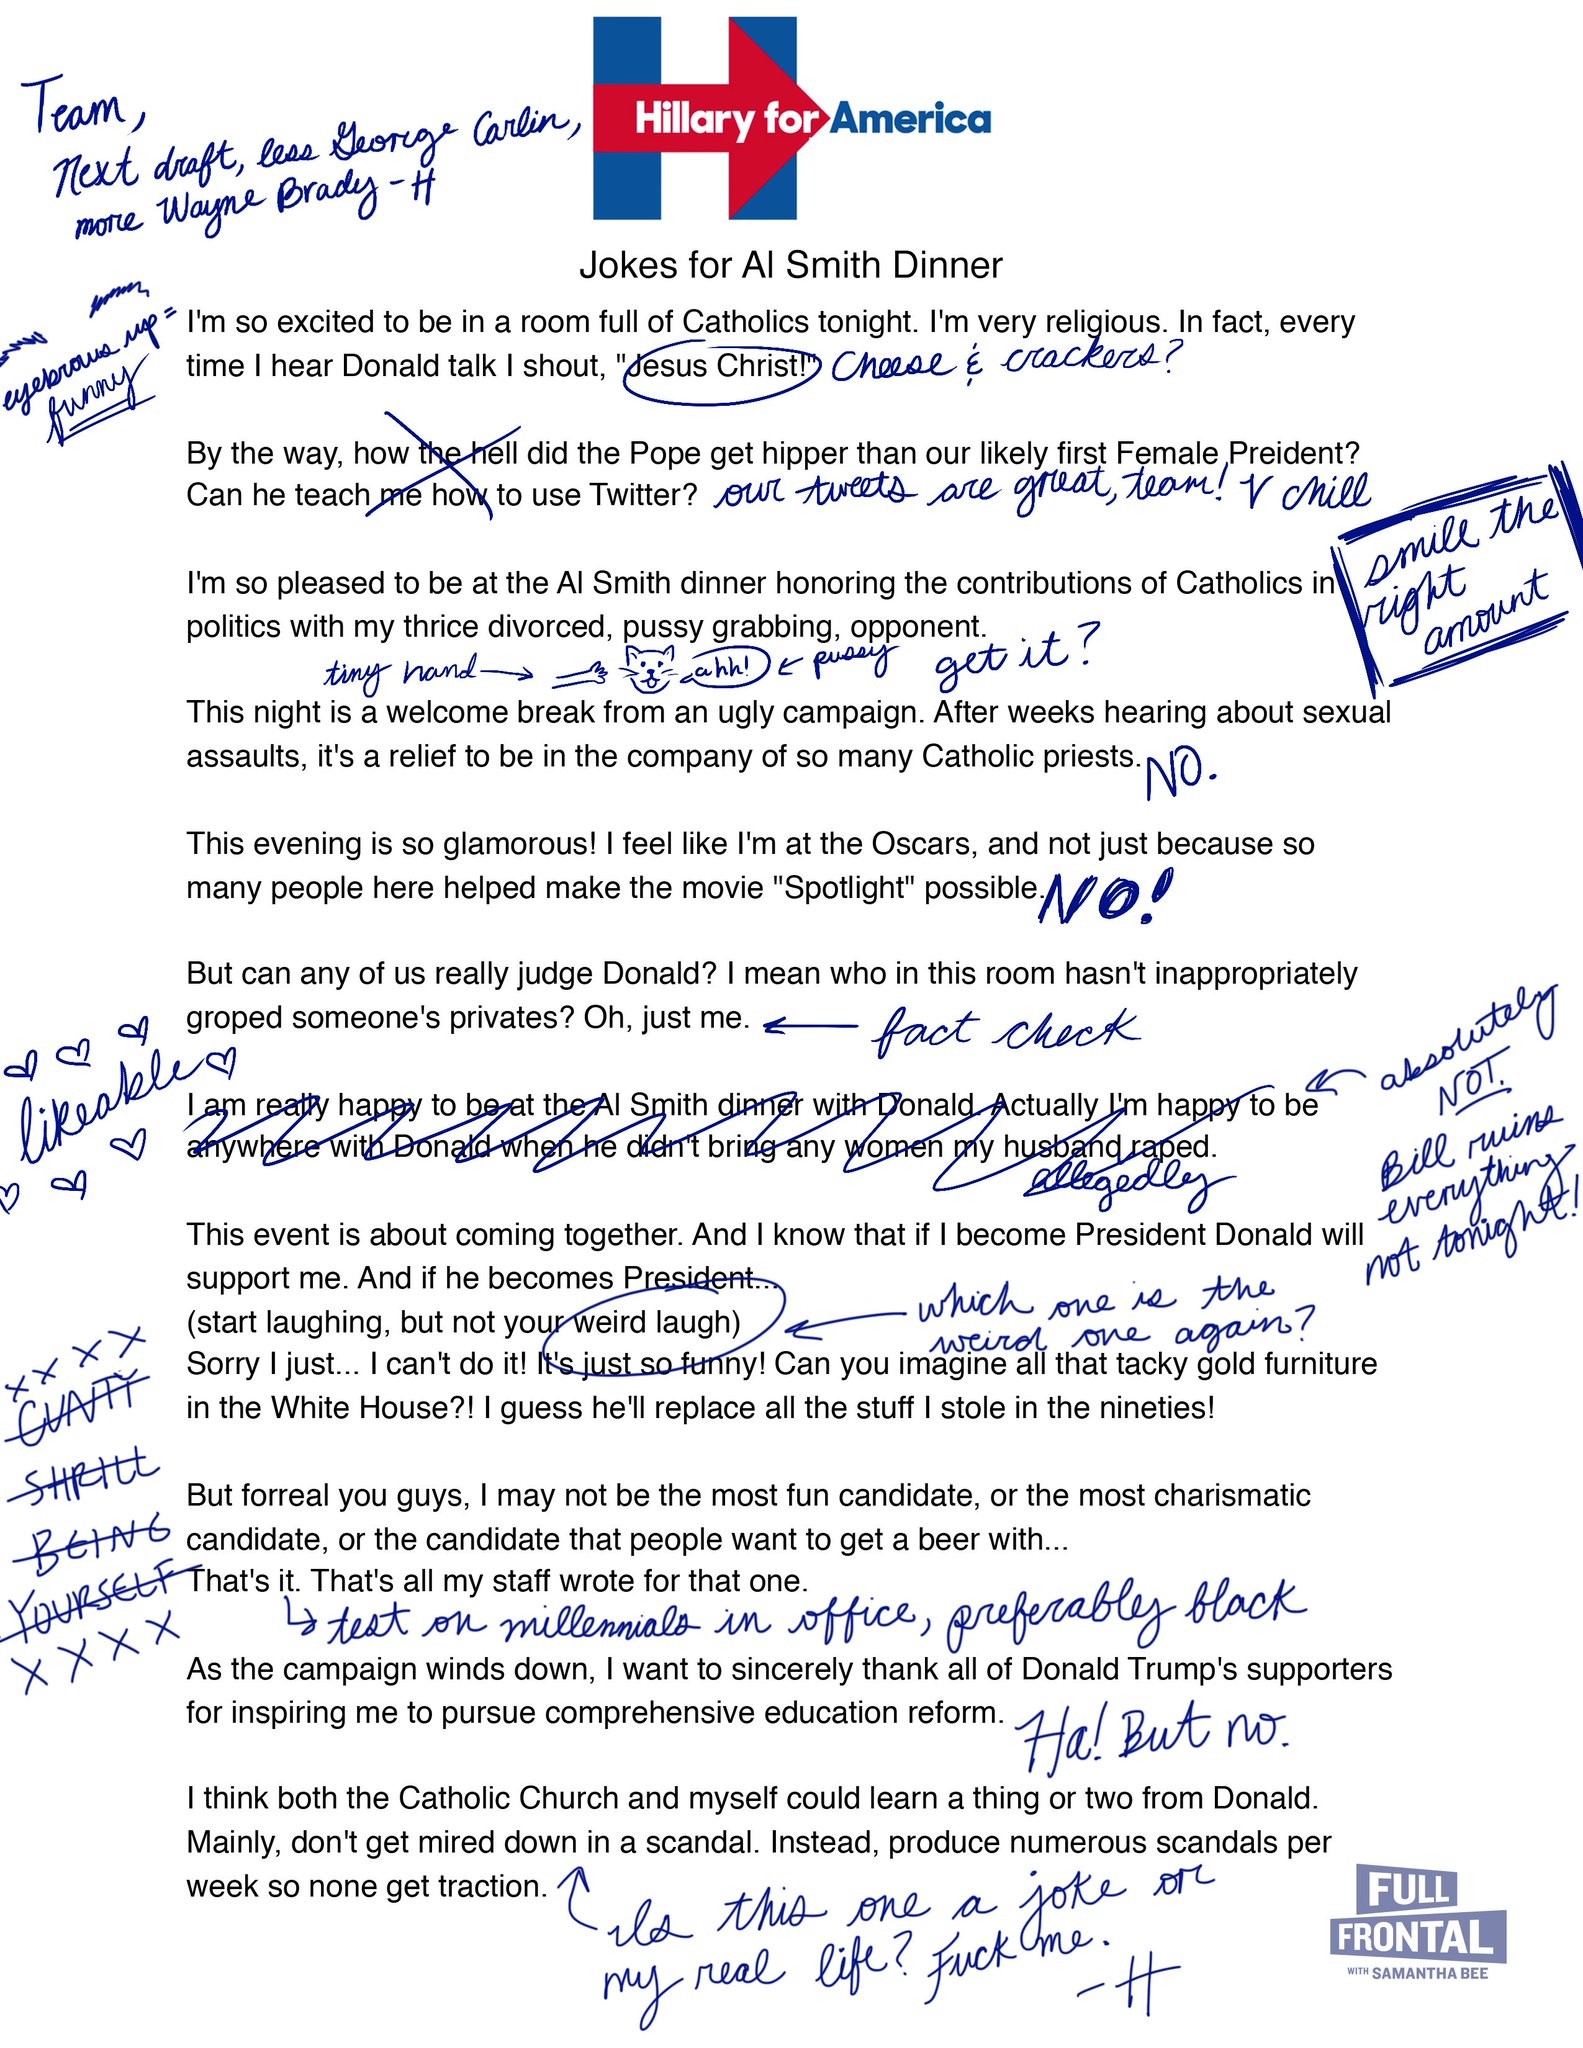 Team,
Next draft, less George Carlin,
more Wayne Brady - H
Hillary for America
Jokes for Al Smith Dinner
eyebrows up =
funny
I'm so excited to be in a room full of Catholics tonight. I'm very religious. In fact, every
time I hear Donald talk I shout, "Jesus Christ!" Cheese & crackers?
By the way, how the hell did the Pope get hipper than our likely first Female Preident?
Can he teach me how to use Twitter? our tweets are great, team! V chill
smile the
right
amount
I'm so pleased to be at the Al Smith dinner honoring the contributions of Catholics in
politics with my thrice divorced, pussy grabbing, opponent.
tiny hand → ahh! ← pussy get it?
This night is a welcome break from an ugly campaign. After weeks hearing about sexual
assaults, it's a relief to be in the company of so many Catholic priests. NO.
This evening is so glamorous! I feel like I'm at the Oscars, and not just because so
many people here helped make the movie "Spotlight" possible. NO!
But can any of us really judge Donald? I mean who in this room hasn't inappropriately
groped someone's privates? Oh, just me. ← fact check
likeable
I am really happy to be at the Al Smith dinner with Donald. Actually I'm happy to be
anywhere with Donald when he didn't bring any women my husband raped.
allegedly
← absolutely
NOT.
Bill ruins
everything
not tonight!
This event is about coming together. And I know that if I become President Donald will
support me. And if he becomes President...
(start laughing, but not your weird laugh) ← which one is the
weird one again?
Sorry I just... I can't do it! It's just so funny! Can you imagine all that tacky gold furniture
in the White House?! I guess he'll replace all the stuff I stole in the nineties!
X X X X
CUNTY
SHRILL
BEING
YOURSELF
X X X X
But forreal you guys, I may not be the most fun candidate, or the most charismatic
candidate, or the candidate that people want to get a beer with...
That's it. That's all my staff wrote for that one.
↳ test on millennials in office, preferably black
As the campaign winds down, I want to sincerely thank all of Donald Trump's supporters
for inspiring me to pursue comprehensive education reform. Ha! But no.
I think both the Catholic Church and myself could learn a thing or two from Donald.
Mainly, don't get mired down in a scandal. Instead, produce numerous scandals per
week so none get traction.
Is this one a joke or
my real life? Fuck me.
- H
FULL
FRONTAL
WITH SAMANTHA BEE